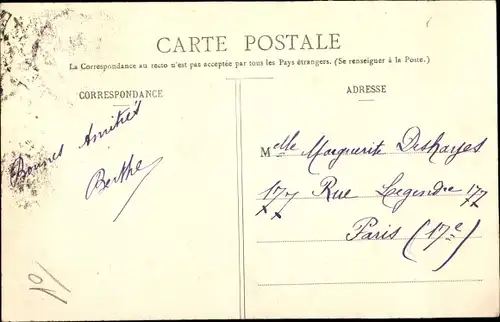 CARTE POSTALE
La Correspondance au recto n'est pas acceptée par tous les Pays étrangers. (Se renseigner à la Poste.)
CORRESPONDANCE
Bonnes Amitiés
Berthe
ADRESSE
Melle Marguerite Deshayes
177 Rue Legendre 177
Paris (17e)
10